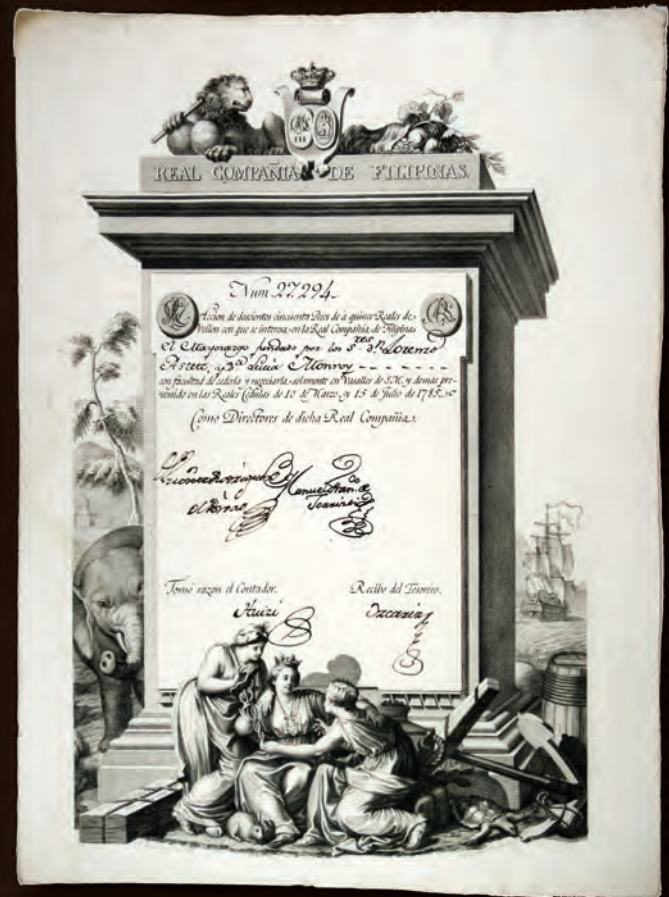 REAL COMPAÑIA DE FILIPINAS.
Num. 27.294
Accion de doscientos cincuenta Pesos de à quince Reales de
Vellon con que se interesa en la Real Compañia de Filipinas
el Mayorazgo fundado por los S.res D.n Lorenzo
y D.a Lucia Monroy
con facultad de cederla y negociarla solamente en Vasallos de S.M. y demas pre-
venido en las Reales Cedulas de 10 de Marzo y 15 de Julio de 1785.
Como Directores de dicha Real Compañia.
Manuel
Tomé razon el Contador.
Recibo del Tesorero.